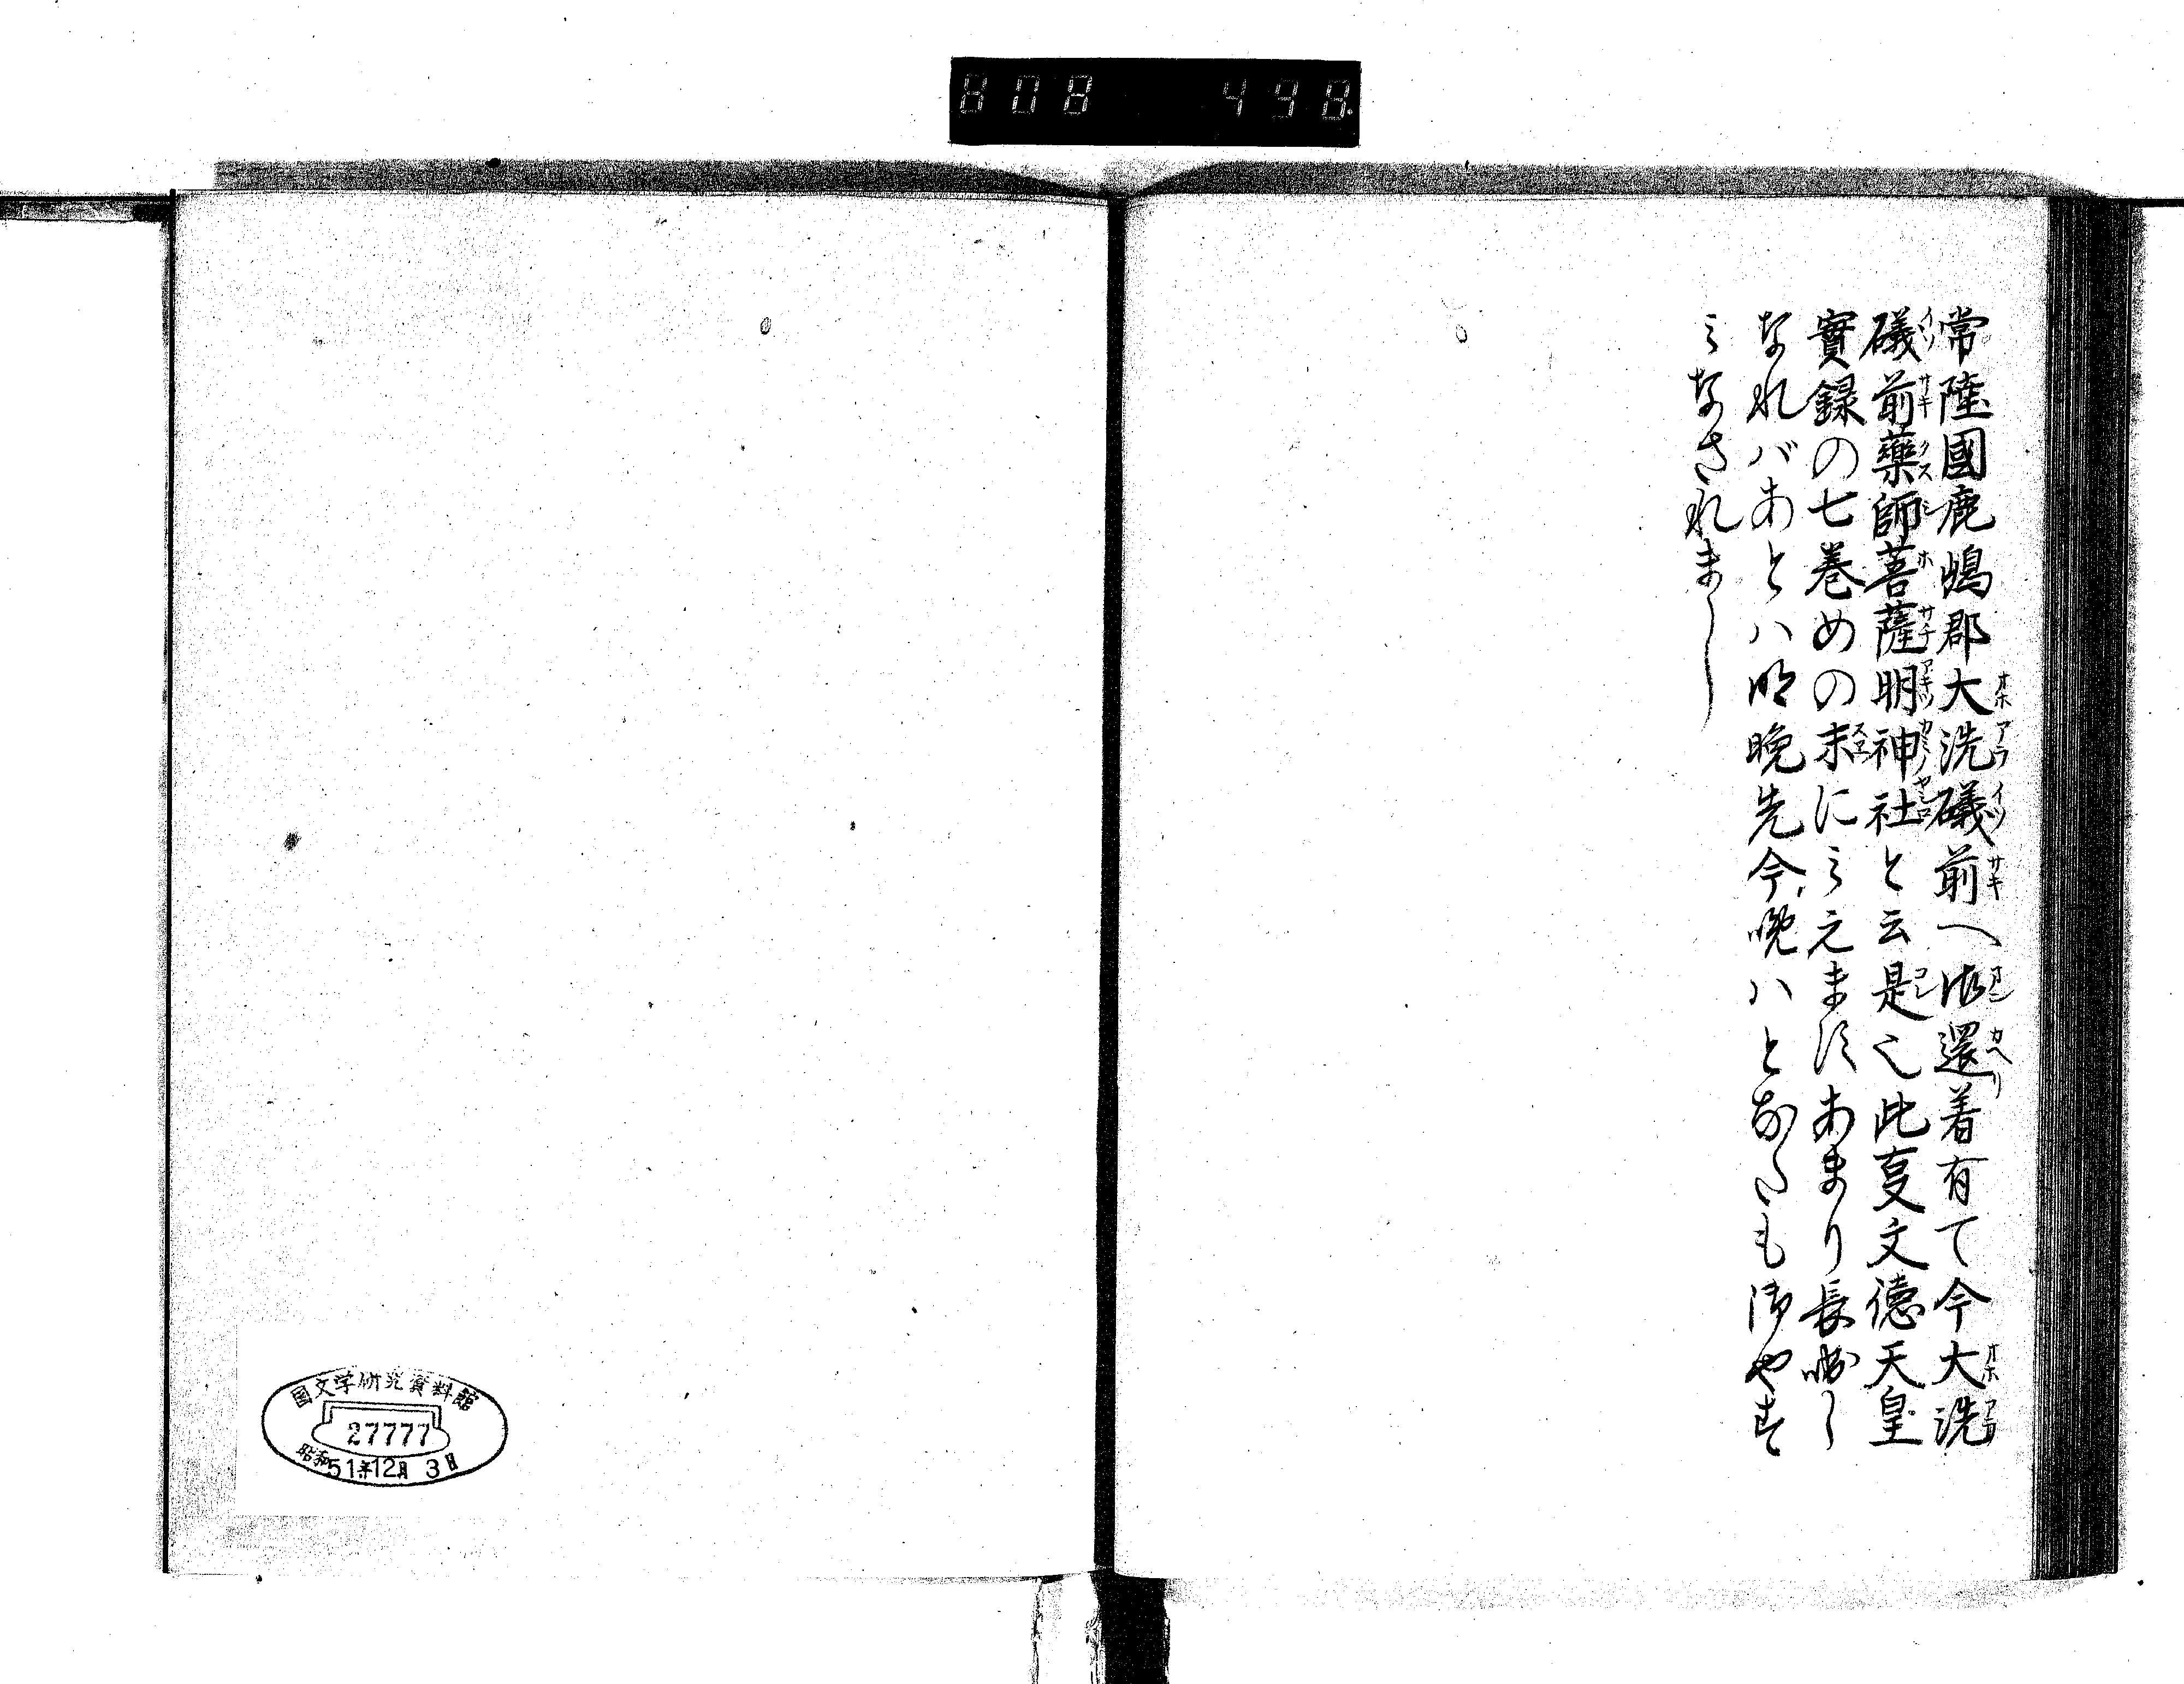 808 498
常陸國鹿嶋郡大洗礒前へ御還着有て今大洗
礒前藥師菩薩明神社と云是也此叓文徳天皇
實録の七巻めの末にみえます あまり長咄し
なれバあとハ明晩先今晩ハとなたも御やす
みなされまし
国文学研究資料館
27777
昭和51年12月3日